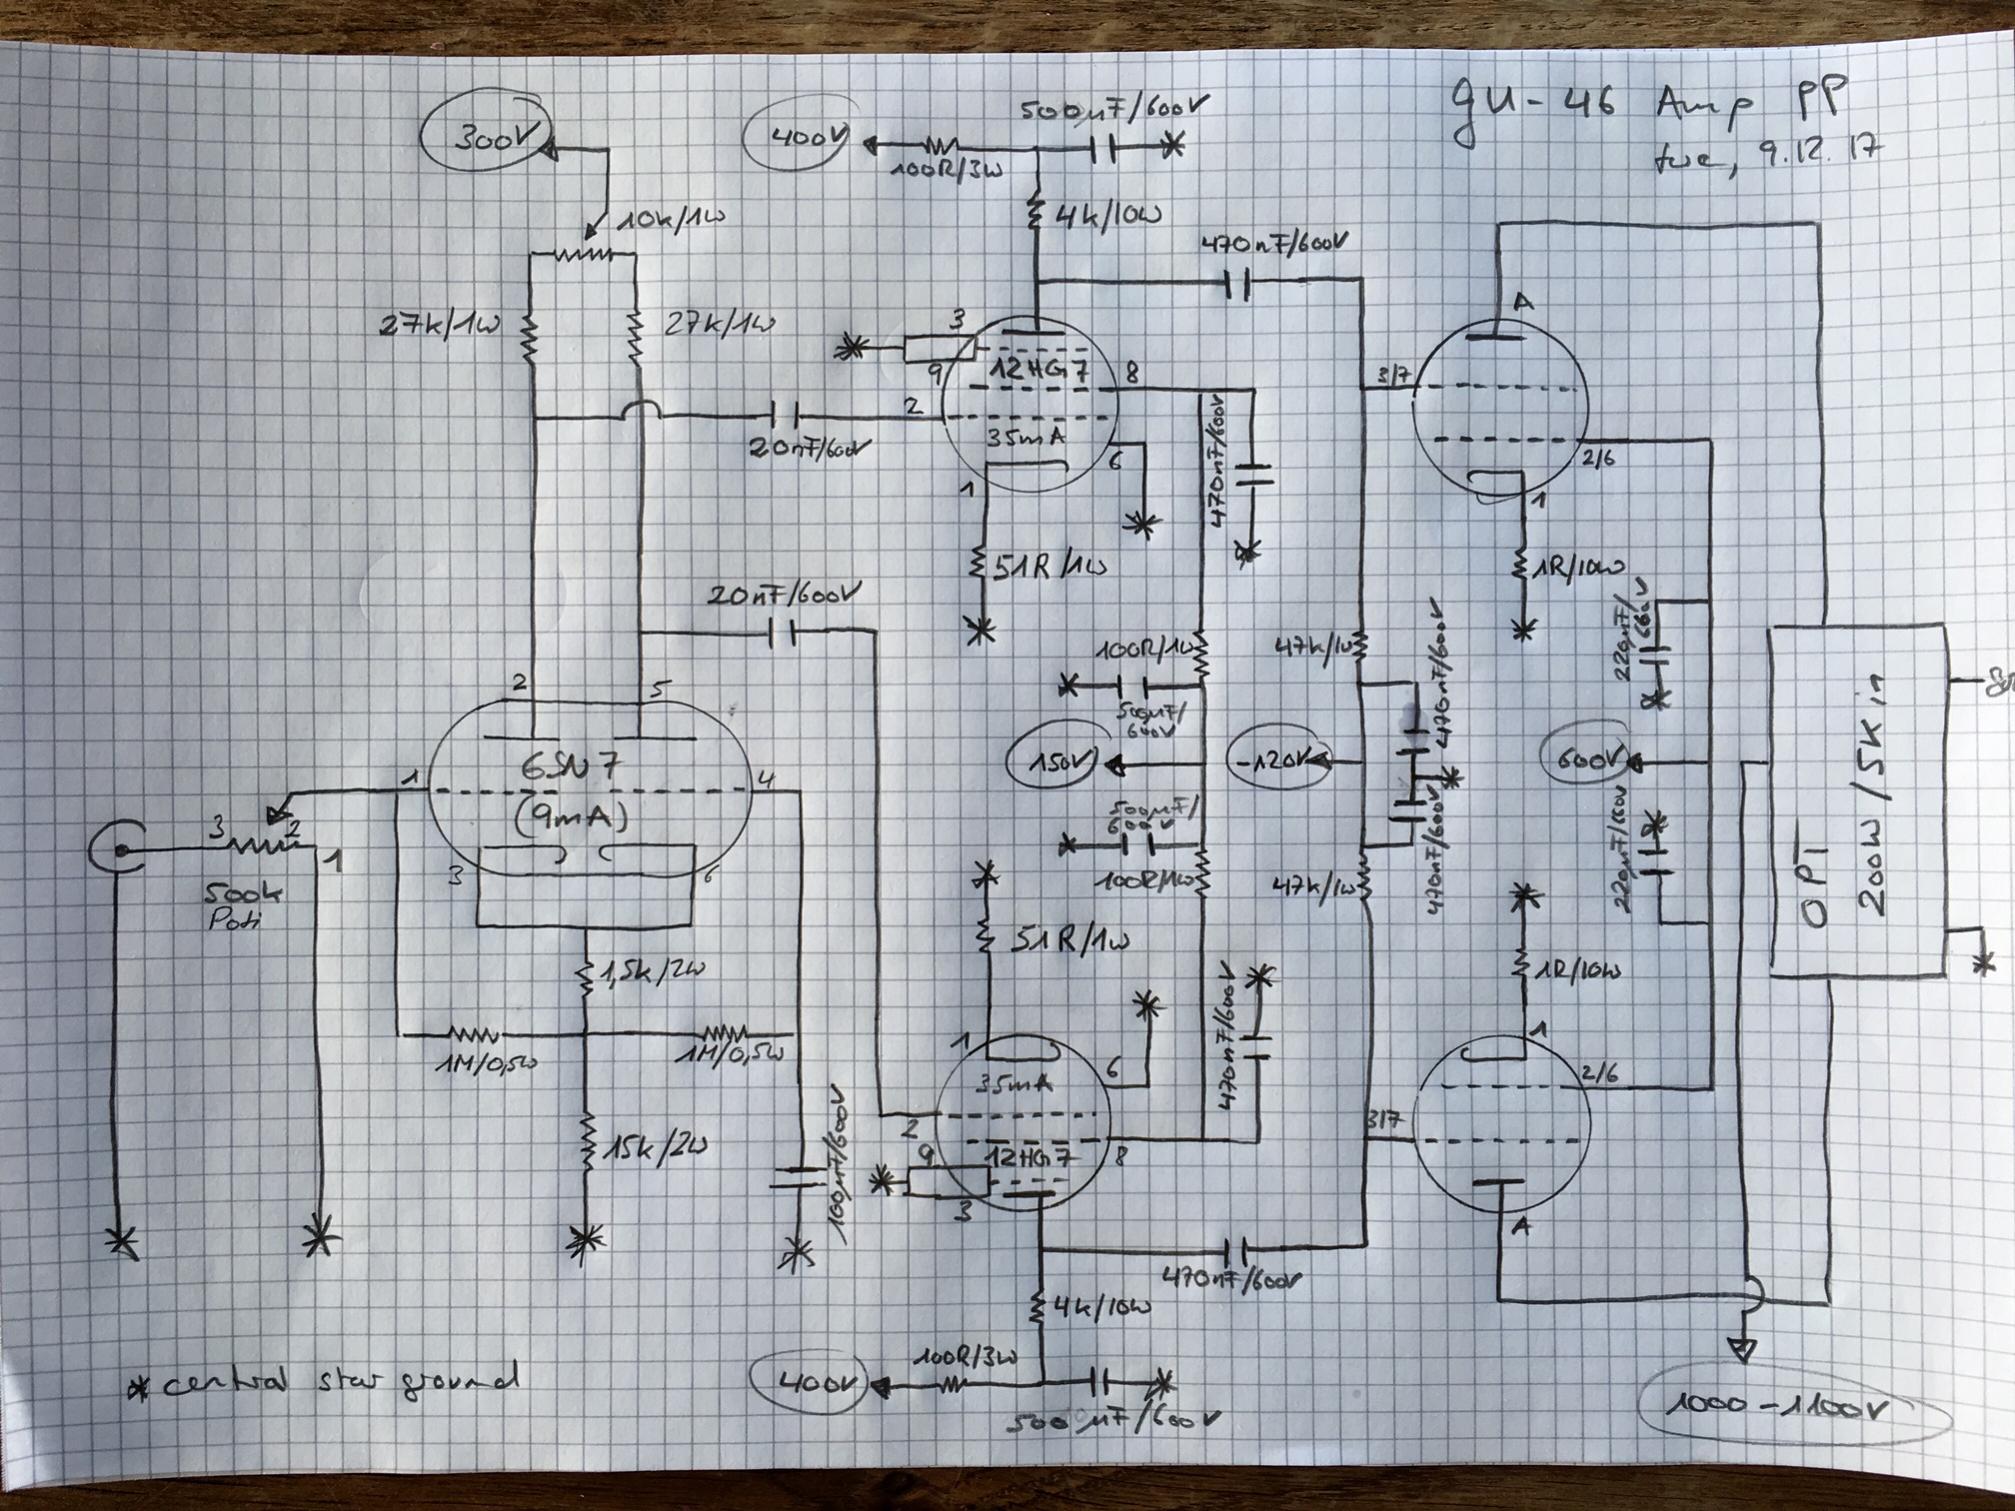 gu-46 Amp PP
tue, 9.12.17
300V
400V
500µF/600V
100R/3W
10k/1W
4k/10W
470nF/600V
27k/1W
27k/1W
3
9
12HG7
8
2
35mA
6
1
20nF/600V
470nF/600V
A
3/7
2/6
1
51R/1W
1R/10W
20nF/600V
100R/1W
47k/1W
470nF/600V
220nF/600V
500µF/
600V
150V
-120V
600V
2
5
6SN7
(9mA)
1
4
3
6
3
2
1
500k
Poti
500µF/
600V
100R/1W
47k/1W
470nF/600V
220nF/600V
OPT
200W/5K in
1,5k/2W
1M/0,5W
1M/0,5W
15k/2W
100µF/600V
51R/1W
1R/10W
1
35mA
6
2
12HG7
8
9
3
470nF/600V
1
2/6
3/7
A
470nF/600V
4k/10W
100R/3W
400V
500µF/600V
1000-1100V
* central star ground